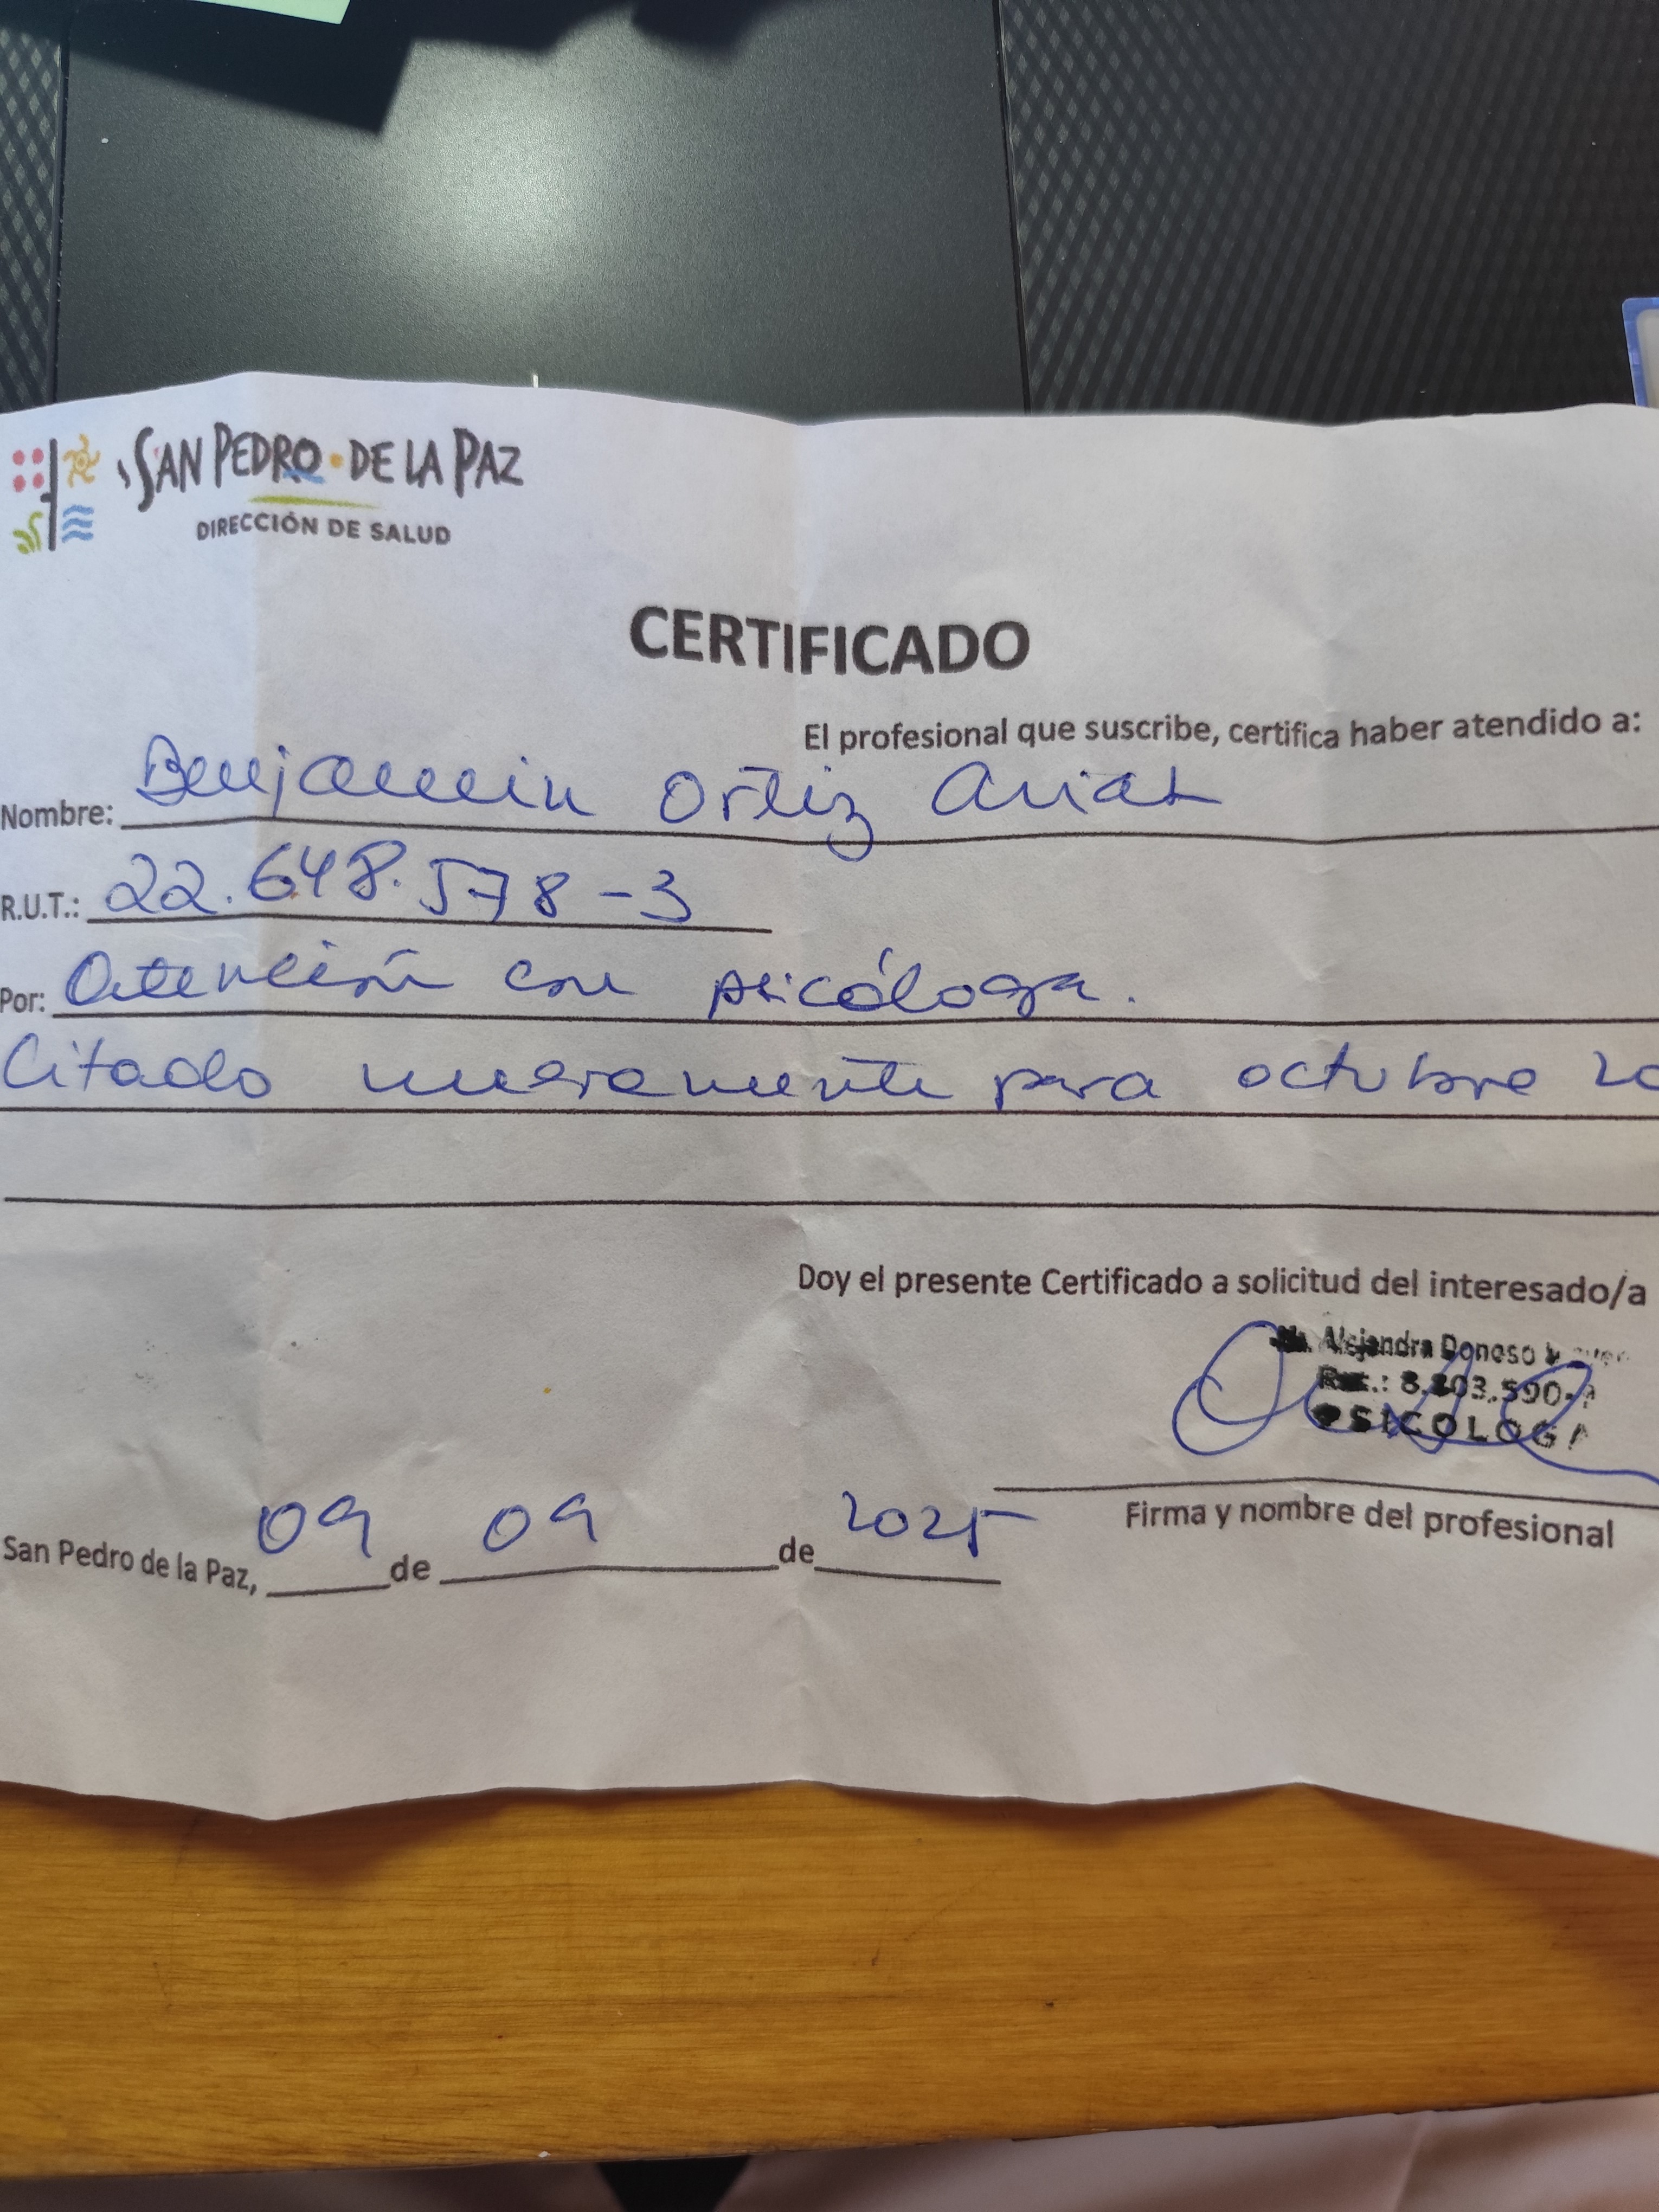 SAN PEDRO DE LA PAZ
DIRECCIÓN DE SALUD
CERTIFICADO
El profesional que suscribe, certifica haber atendido a:
Nombre: Benjamin Ortiz Arias
R.U.T.: 22.648.578-3
Por: Atención con psicóloga.
Citado nuevamente para octubre 20
Doy el presente Certificado a solicitud del interesado/a
Alejandra Donoso
PSICOLOGA
Firma y nombre del profesional
San Pedro de la Paz, 09 de 09 de 2025